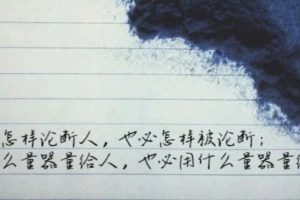 怎样论断人，也必怎样被论断；
么量器量给人，也必用什么量器量给